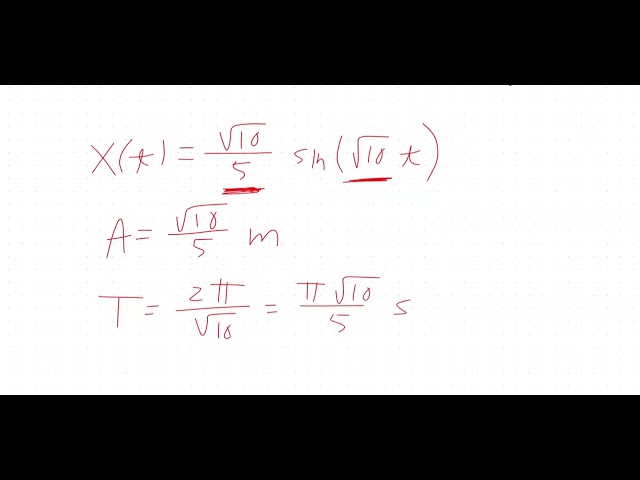 X(t) = √10/5 sin(√10 t)
A = √10/5 m
T = 2π/√10 = π√10/5 s